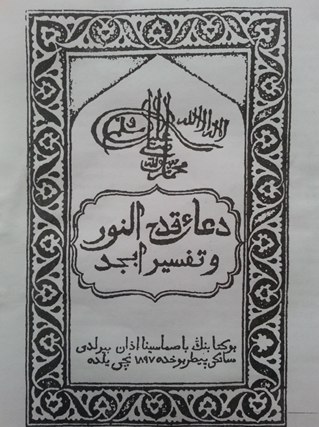 لا اله الا الله
محمد رسول الله
دعاء قدح النور
و تفسير ابجد
بو كتابنڭ باصماسينا اذن بيرلدى
سانكت پيطربورخده ١٨٩٧ نچى يلده